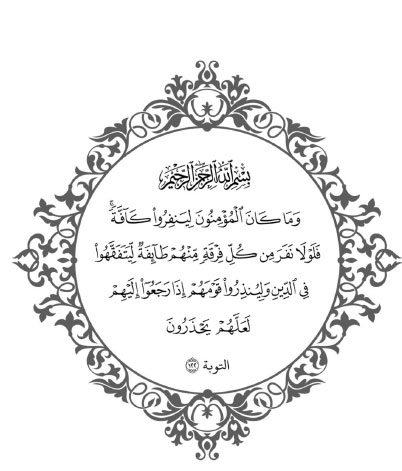 بِسْمِ ٱللَّهِ ٱلرَّحْمَٰنِ ٱلرَّحِيمِ
وَمَا كَانَ ٱلْمُؤْمِنُونَ لِيَنفِرُوا۟ كَآفَّةً ۚ
فَلَوْلَا نَفَرَ مِن كُلِّ فِرْقَةٍ مِّنْهُمْ طَآئِفَةٌ لِّيَتَفَقَّهُوا۟
فِى ٱلدِّينِ وَلِيُنذِرُوا۟ قَوْمَهُمْ إِذَا رَجَعُوٓا۟ إِلَيْهِمْ
لَعَلَّهُمْ يَحْذَرُونَ
التوبة ١٢٢